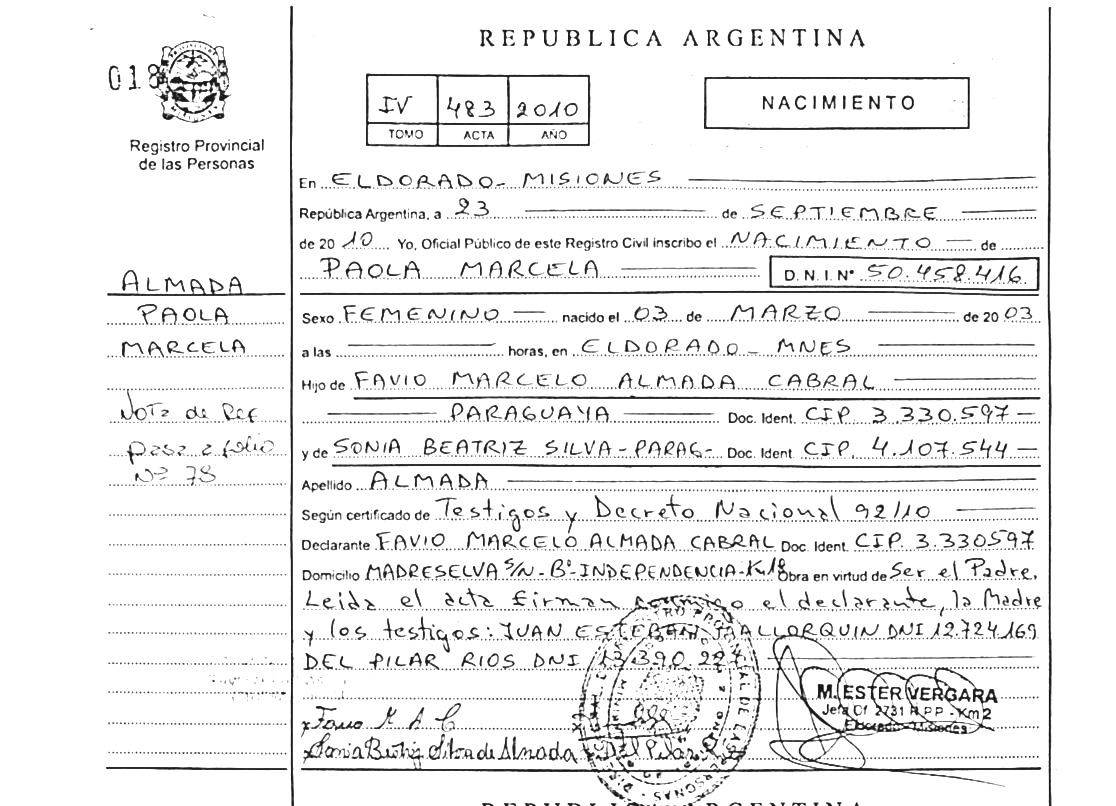 REPUBLICA ARGENTINA
018
IV 483 2010
TOMO ACTA AÑO
NACIMIENTO
Registro Provincial
de las Personas
En ELDORADO - MISIONES
República Argentina, a 23 de SEPTIEMBRE
de 2010 Yo, Oficial Público de este Registro Civil inscribo el NACIMIENTO de
PAOLA MARCELA D.N.I. Nº 50.458.416
ALMADA
PAOLA
MARCELA
Sexo FEMENINO nacido el 03 de MARZO de 2003
a las horas, en ELDORADO - MNES
Hijo de FAVIO MARCELO ALMADA CABRAL
PARAGUAYA Doc. Ident. CIP 3.330.597
y de SONIA BEATRIZ SILVA - PARAG - Doc. Ident. CIP. 4.107.544
Nota de Ref
pasa a folio
Nº 78
Apellido ALMADA
Según certificado de Testigos y Decreto Nacional 92/10
Declarante FAVIO MARCELO ALMADA CABRAL Doc. Ident. CIP. 3.330597
Domicilio MADRESELVA S/N - Bº INDEPENDENCIA - Km 18 Obra en virtud de Ser el Padre.
Leida el acta firman conmigo el declarante, la Madre
y los testigos: JUAN ESTEBAN MALLORQUIN DNI 12.724.169
DEL PILAR RIOS DNI 13.390.227
M. ESTER VERGARA
Jefa Of 2731 R.P.P - Km 2
Eldorado - Misiones
x Favio M. A. C
x Sonia Beatriz Silva de Almada Del Pilar
REPUBLICA ARGENTINA